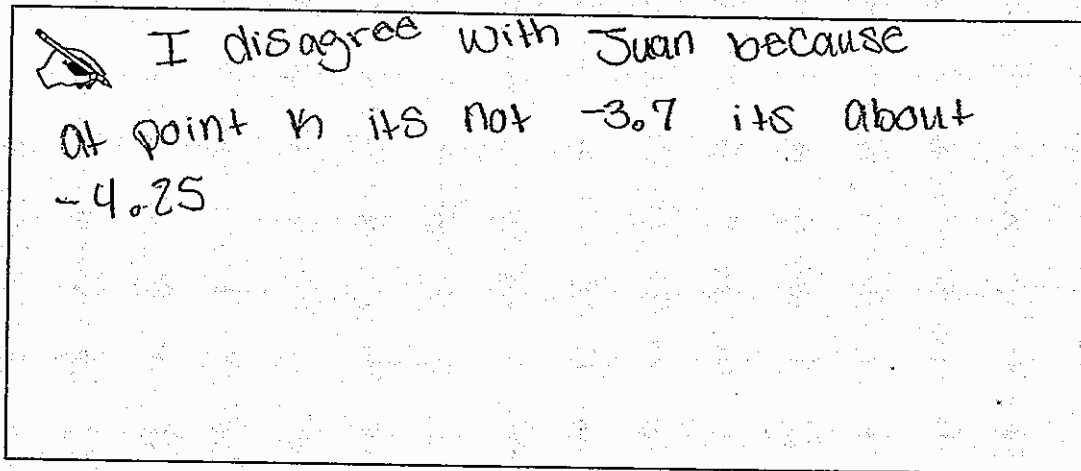 I disagree with Juan because
at point K its not -3.7 its about
-4.25